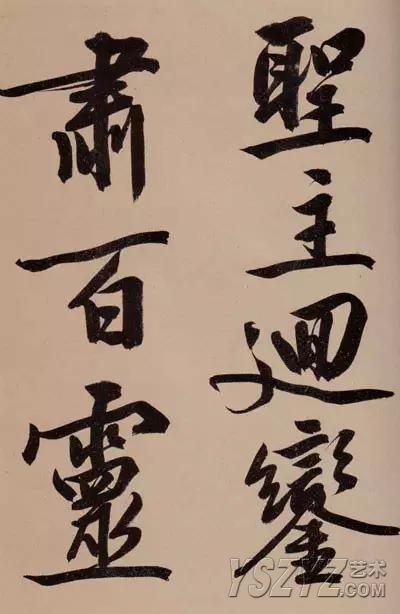 聖主廻鑾
肅百靈
YSZYZ艺术
.COM